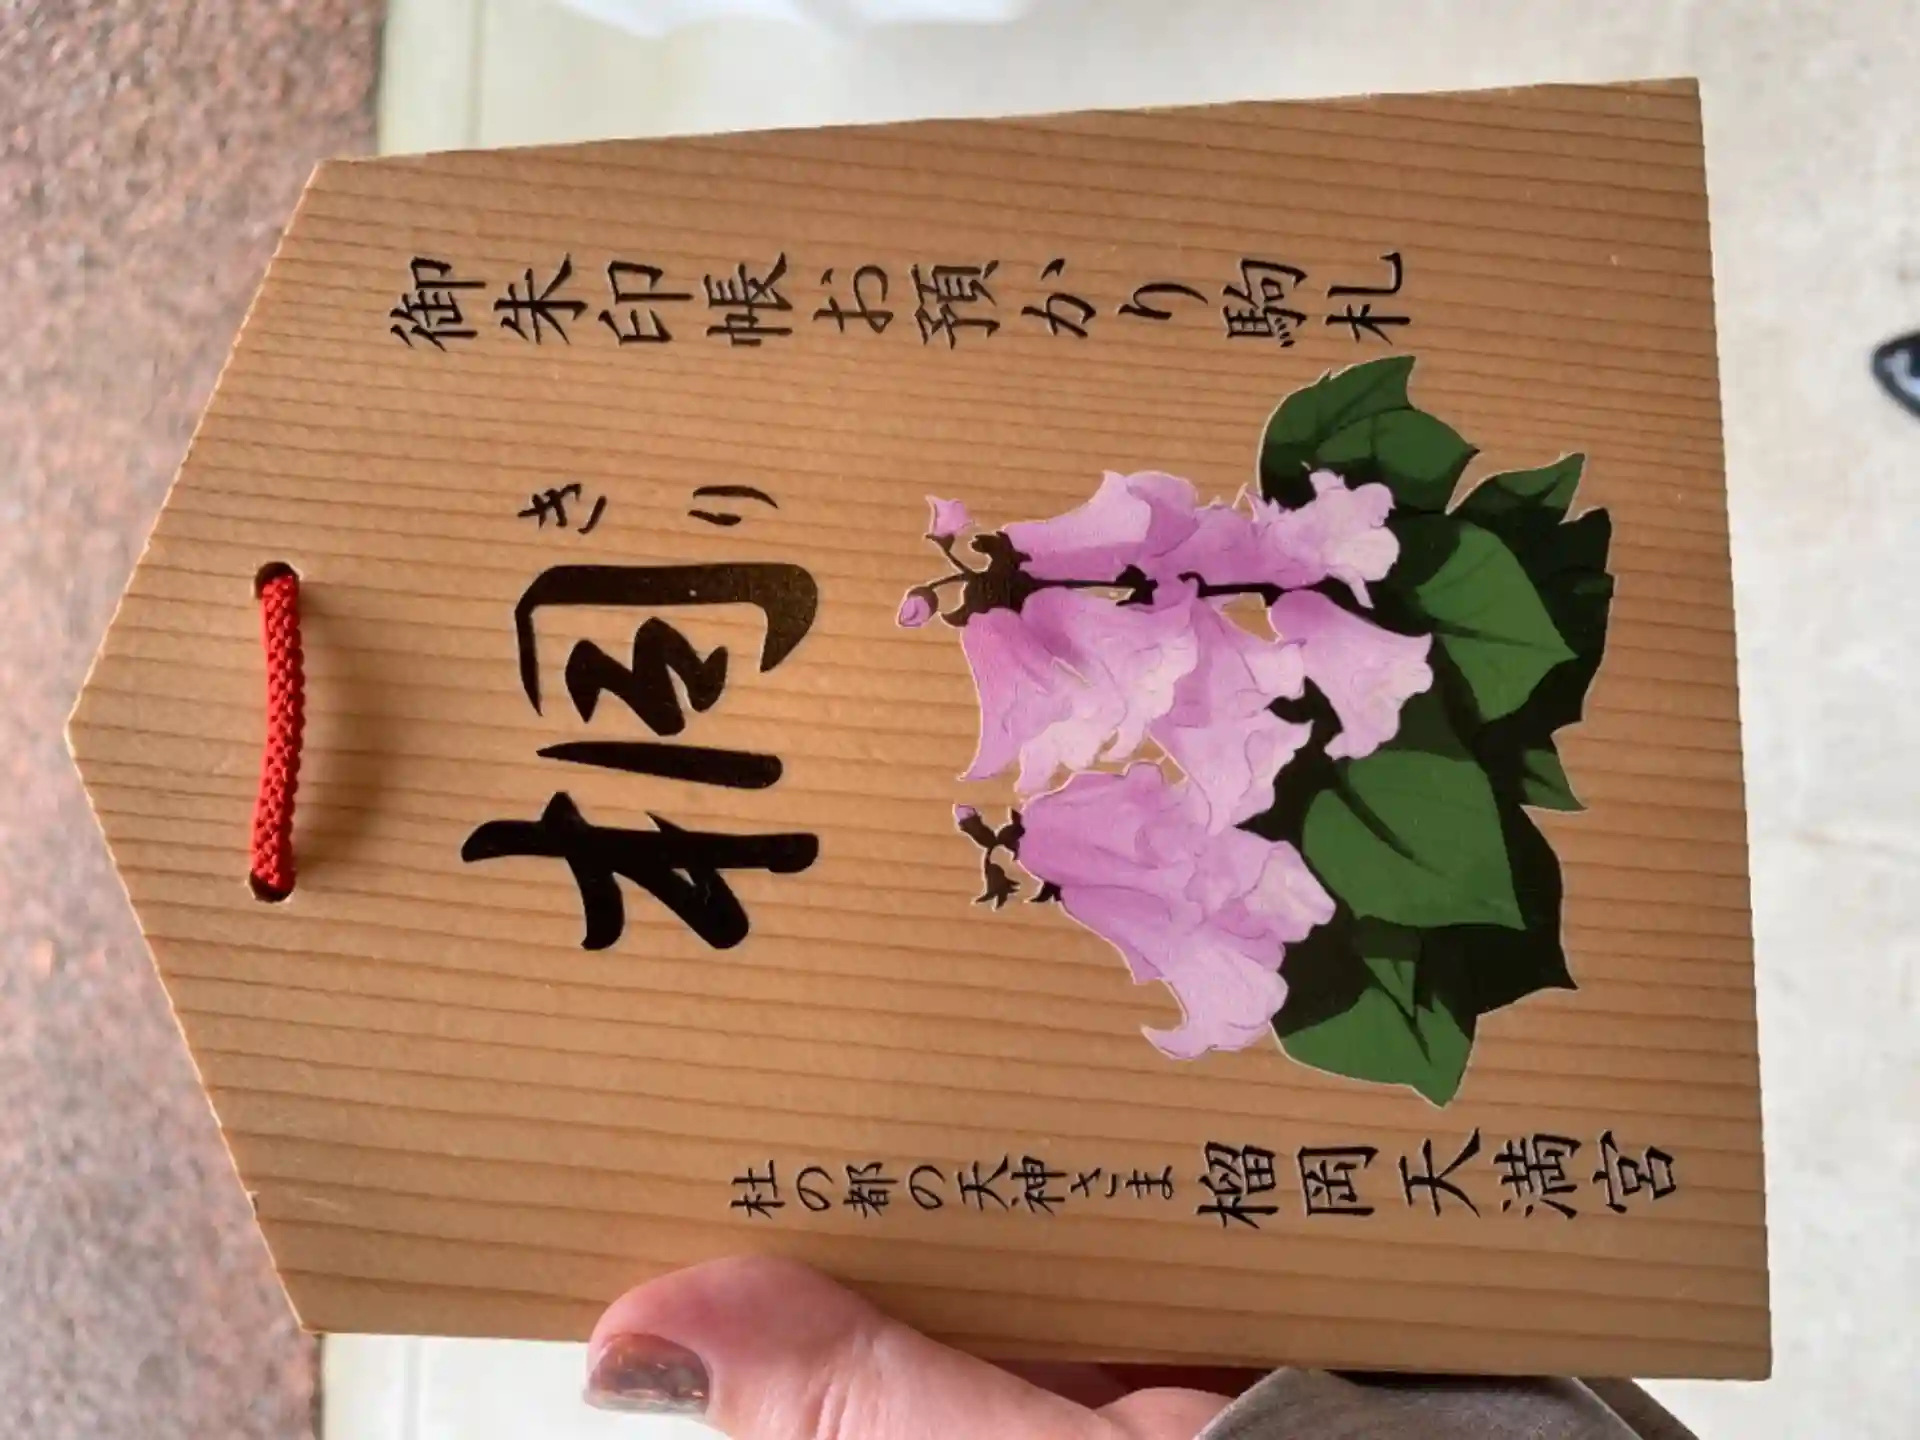 御朱印帳お預かり駒札
きり
桐
杜の都の天神さま 榴岡天満宮